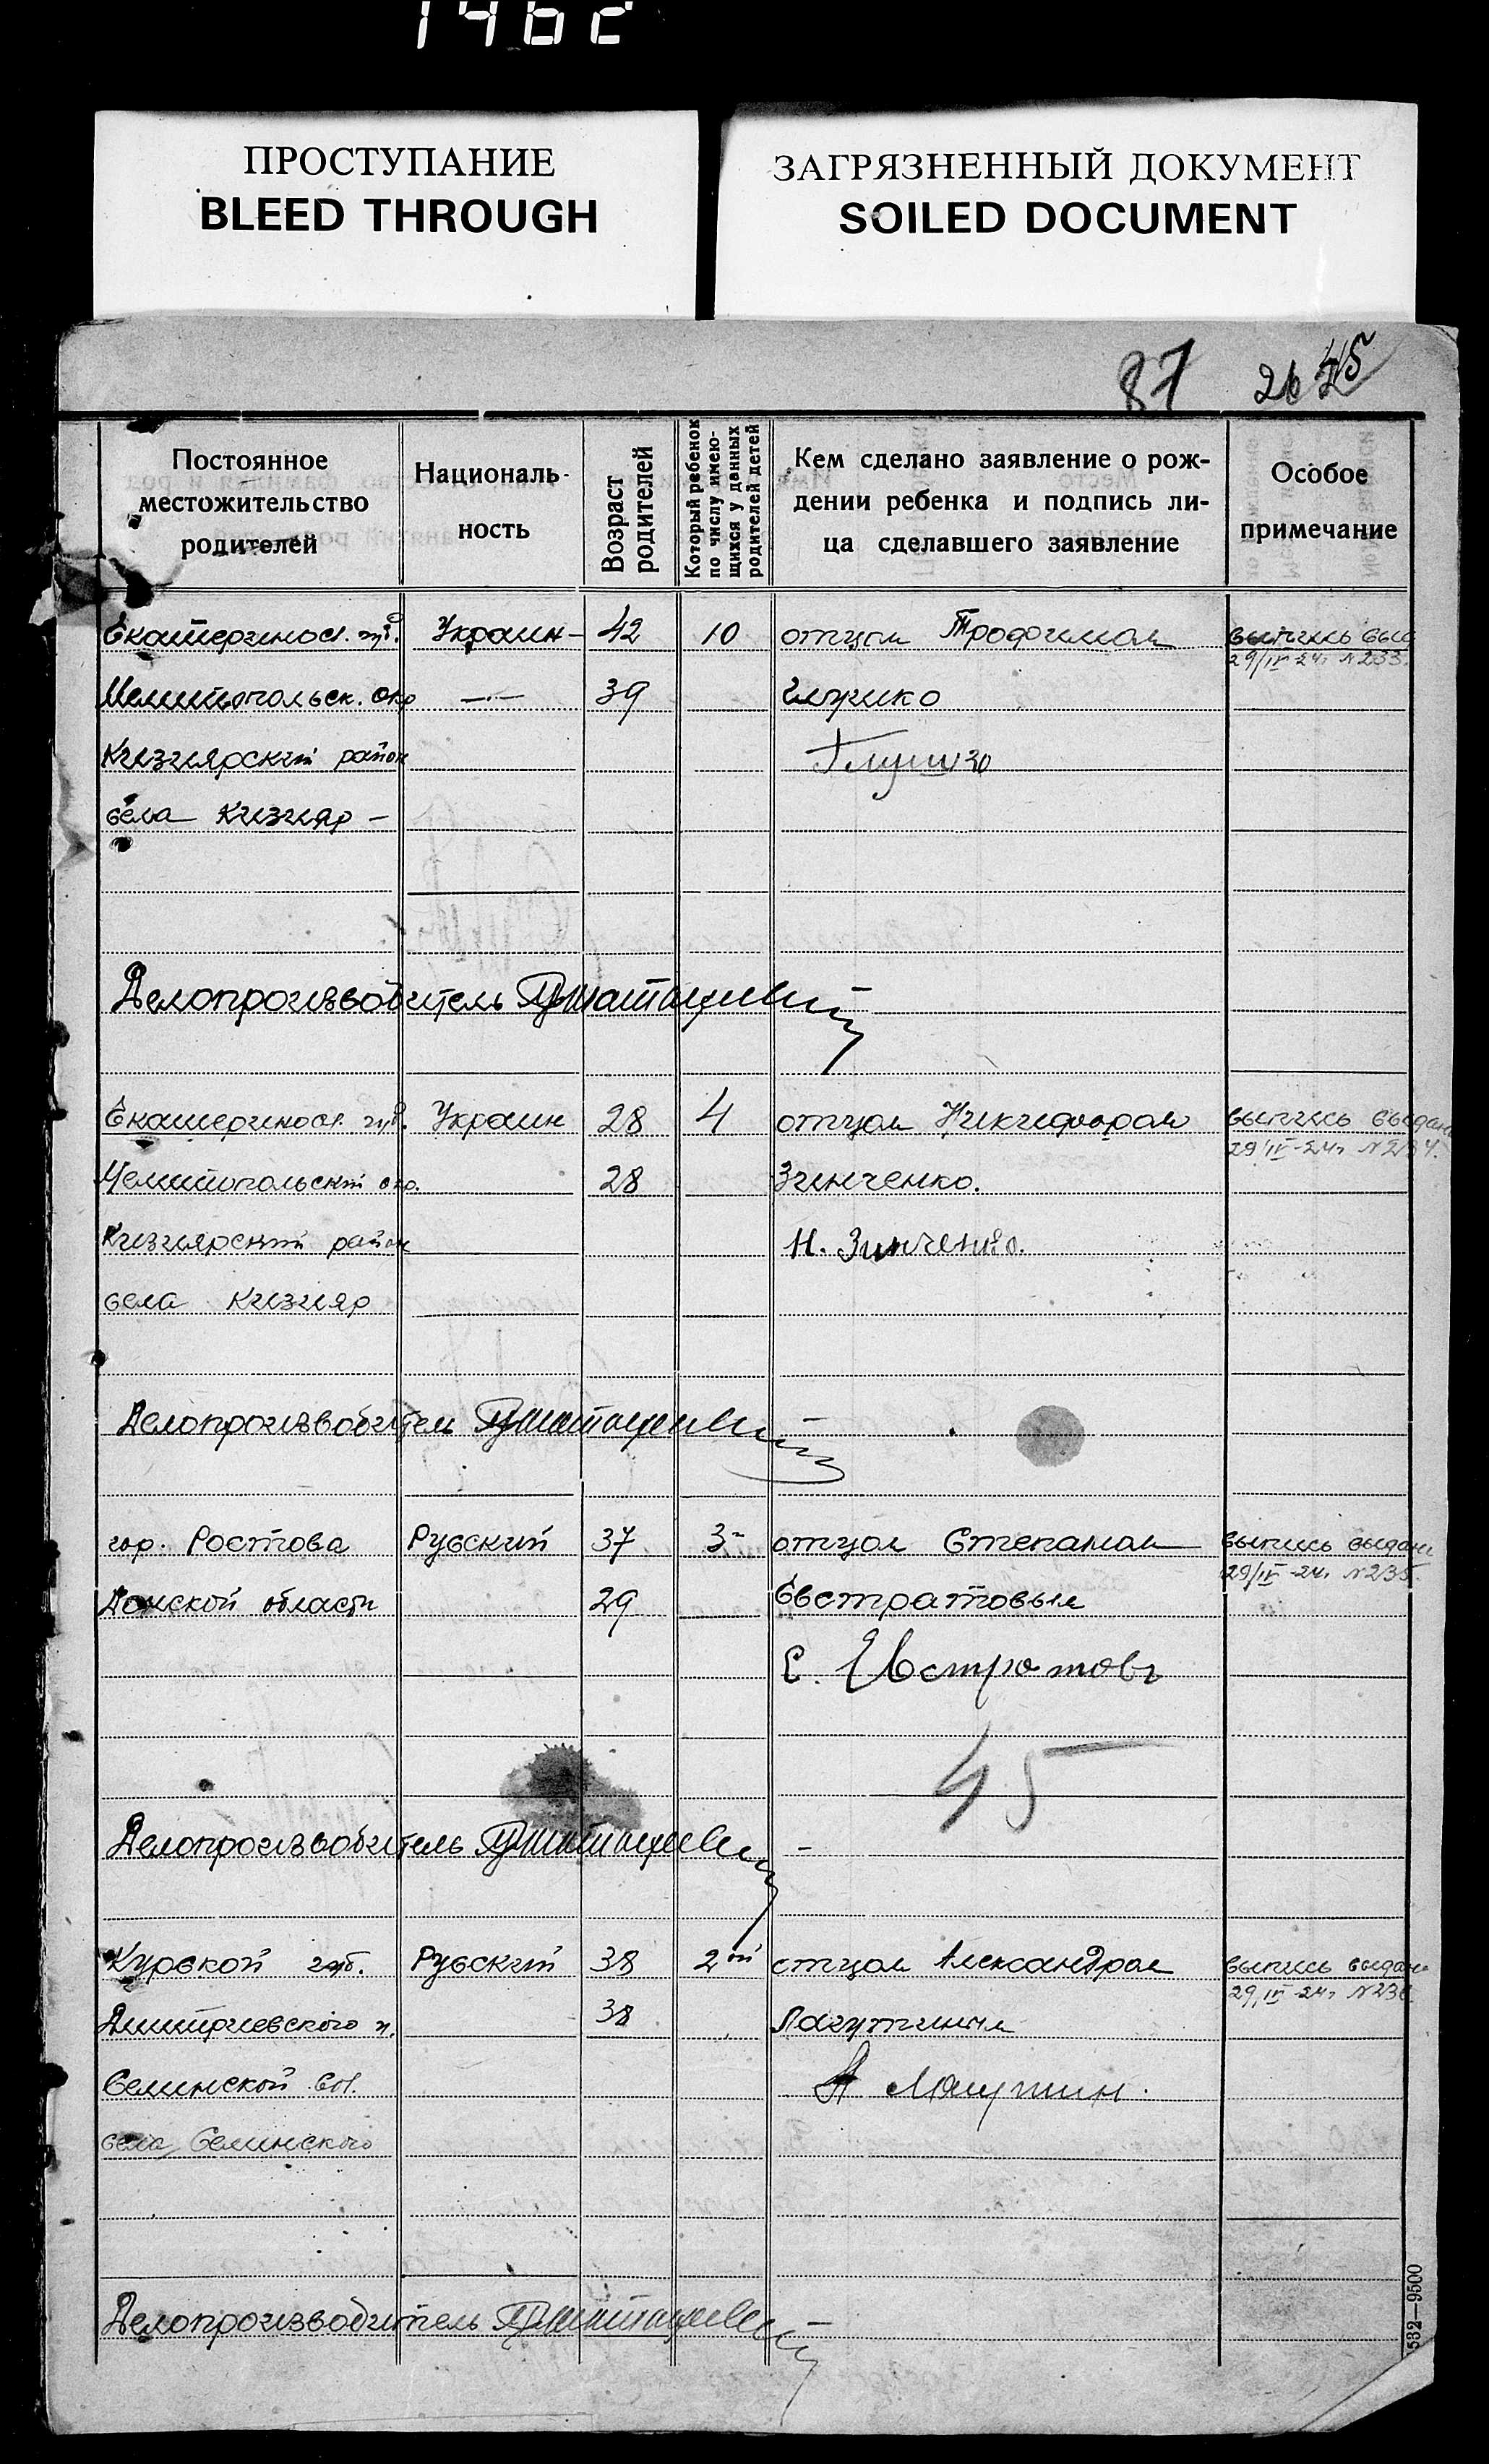 ПРОСТУПАНИЕ
BLEED THROUGH
ЗАГРЯЗНЕННЫЙ ДОКУМЕНТ
SOILED DOCUMENT
87
Постоянное местожительство родителей
Националь-ность
Возраст родителей
Который ребенок по числу имею-щихся у данных родителей детей
Кем сделано заявление о рож-дении ребенка и подпись ли-ца сделавшего заявление
Особое примечание
Екатеринос. губ. Украин- 42 10 отцом Трофимом выпись выд
29/IV-24г №233.
Мелитопольск. окр —"— 39
Кизиярский район
села Кизияр -
Делопроизводитель
Екатеринос. губ. Украин 28 4 отцом Никифором выпись выдана
29/IV-24г №234.
Мелитопольский окр. 28 Зинченко.
Кизиярский район Н. Зинченко.
села Кизияр
Делопроизводитель
гор. Ростова Русский 37 3- отцом Степаном выпись выдана
29/IV-24г №235.
Донской области 29 Евстратовым
Е. Евстратовъ
45
Делопроизводитель
Курской губ. Русский 38 2ой отцом Александром выпись выдана
29/IV-24г №236.
Дмитриевского у. 38 Лагутиным
Селинской вол. А Лагутин.
села Селинского
Делопроизводитель
532—9500